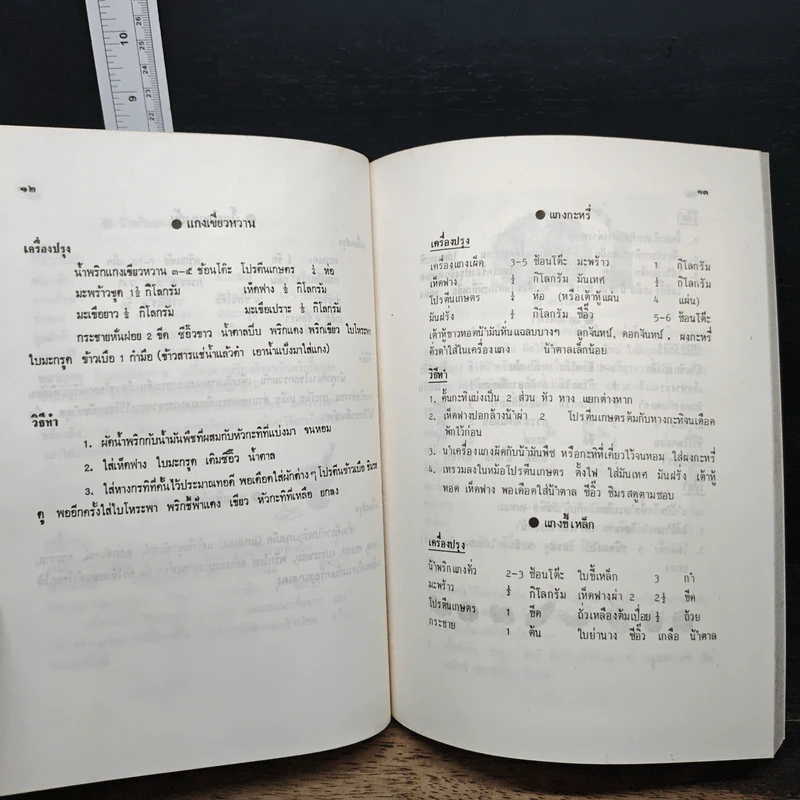 10
9
26
25
24
23
22
๑๒
● แกงเขียวหวาน
เครื่องปรุง
น้ำพริกแกงเขียวหวาน ๓-๕ ช้อนโต๊ะ โปรตีนเกษตร ห่อ
มะพร้าวขูด กิโลกรัม เห็ดฟาง กิโลกรัม
มะเขือยาว กิโลกรัม มะเขือเปราะ กิโลกรัม
กระชายหั่นฝอย 2 ขีด ซีอิ๊วขาว น้ำตาลปีบ พริกแดง พริกเขียว ใบโหระพา
ใบมะกรูด ข้าวเบือ 1 กำมือ (ข้าวสารแช่น้ำแล้วตำ เอาน้ำแป้งมาใส่แกง)
วิธีทำ
1. ผัดน้ำพริกกับน้ำมันพืชที่ผสมกับหัวกะทิที่แบ่งมา จนหอม
2. ใส่เห็ดฟาง ใบมะกรูด เติมซีอิ๊ว น้ำตาล
3. ใส่หางกะทิที่คั้นไว้ประมาณพอดี พอเดือดใส่ผักต่างๆ โปรตีนข้าวเบือ ชิมรส
ดู พออีกครั้งใส่ใบโหระพา พริกชี้ฟ้าแดง เขียว หัวกะทิที่เหลือ ยกลง
๑๓
● แกงกะหรี่
เครื่องปรุง
เครื่องแกงเผ็ด 3-5 ช้อนโต๊ะ มะพร้าว 1 กิโลกรัม
เห็ดฟาง กิโลกรัม มันเทศ กิโลกรัม
โปรตีนเกษตร ห่อ (หรือเต้าหู้แผ่น 4 แผ่น)
มันฝรั่ง กิโลกรัม ซีอิ๊ว 5-6 ช้อนโต๊ะ
เต้าหู้ขาวทอดน้ำมันหั่นแฉลบบางๆ ลูกจันทน์, ดอกจันทน์, ผงกะหรี่
คั่วตำใส่ในเครื่องแกง น้ำตาลเล็กน้อย
วิธีทำ
1. คั้นกะทิแบ่งเป็น 2 ส่วน หัว หาง แยกต่างหาก
2. เห็ดฟางปอกล้างน้ำผ่า 2 โปรตีนเกษตรต้มกับหางกะทิจนเดือด
พักไว้ก่อน
3. นำเครื่องแกงผัดกับน้ำมันพืช หรือกะทิที่เคี่ยวไว้จนหอม ใส่ผงกะหรี่
4. เทรวมลงในหม้อโปรตีนเกษตร ตั้งไฟ ใส่มันเทศ มันฝรั่ง เต้าหู้
ทอด เห็ดฟาง พอเดือดใส่น้ำตาล ซีอิ๊ว ชิมรสดูตามชอบ
● แกงขี้เหล็ก
เครื่องปรุง
น้ำพริกแกงคั่ว 2-3 ช้อนโต๊ะ ใบขี้เหล็ก 3 กำ
มะพร้าว กิโลกรัม เห็ดฟางผ่า 2 2½ ขีด
โปรตีนเกษตร 1 ขีด ถั่วเหลืองต้มเปื่อย ถ้วย
กระชาย 1 ต้น ใบย่านาง ซีอิ๊ว เกลือ น้ำตาล